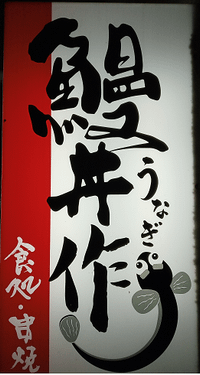 鰻丼作
うなぎ
食処・串焼